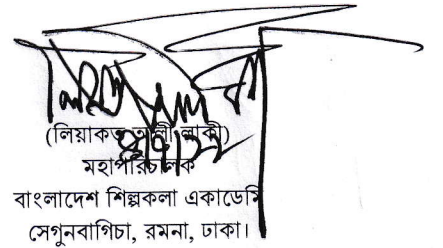 (লিয়াকত আলী লাকী)
মহাপরিচালক
বাংলাদেশ শিল্পকলা একাডেমি
সেগুনবাগিচা, রমনা, ঢাকা।